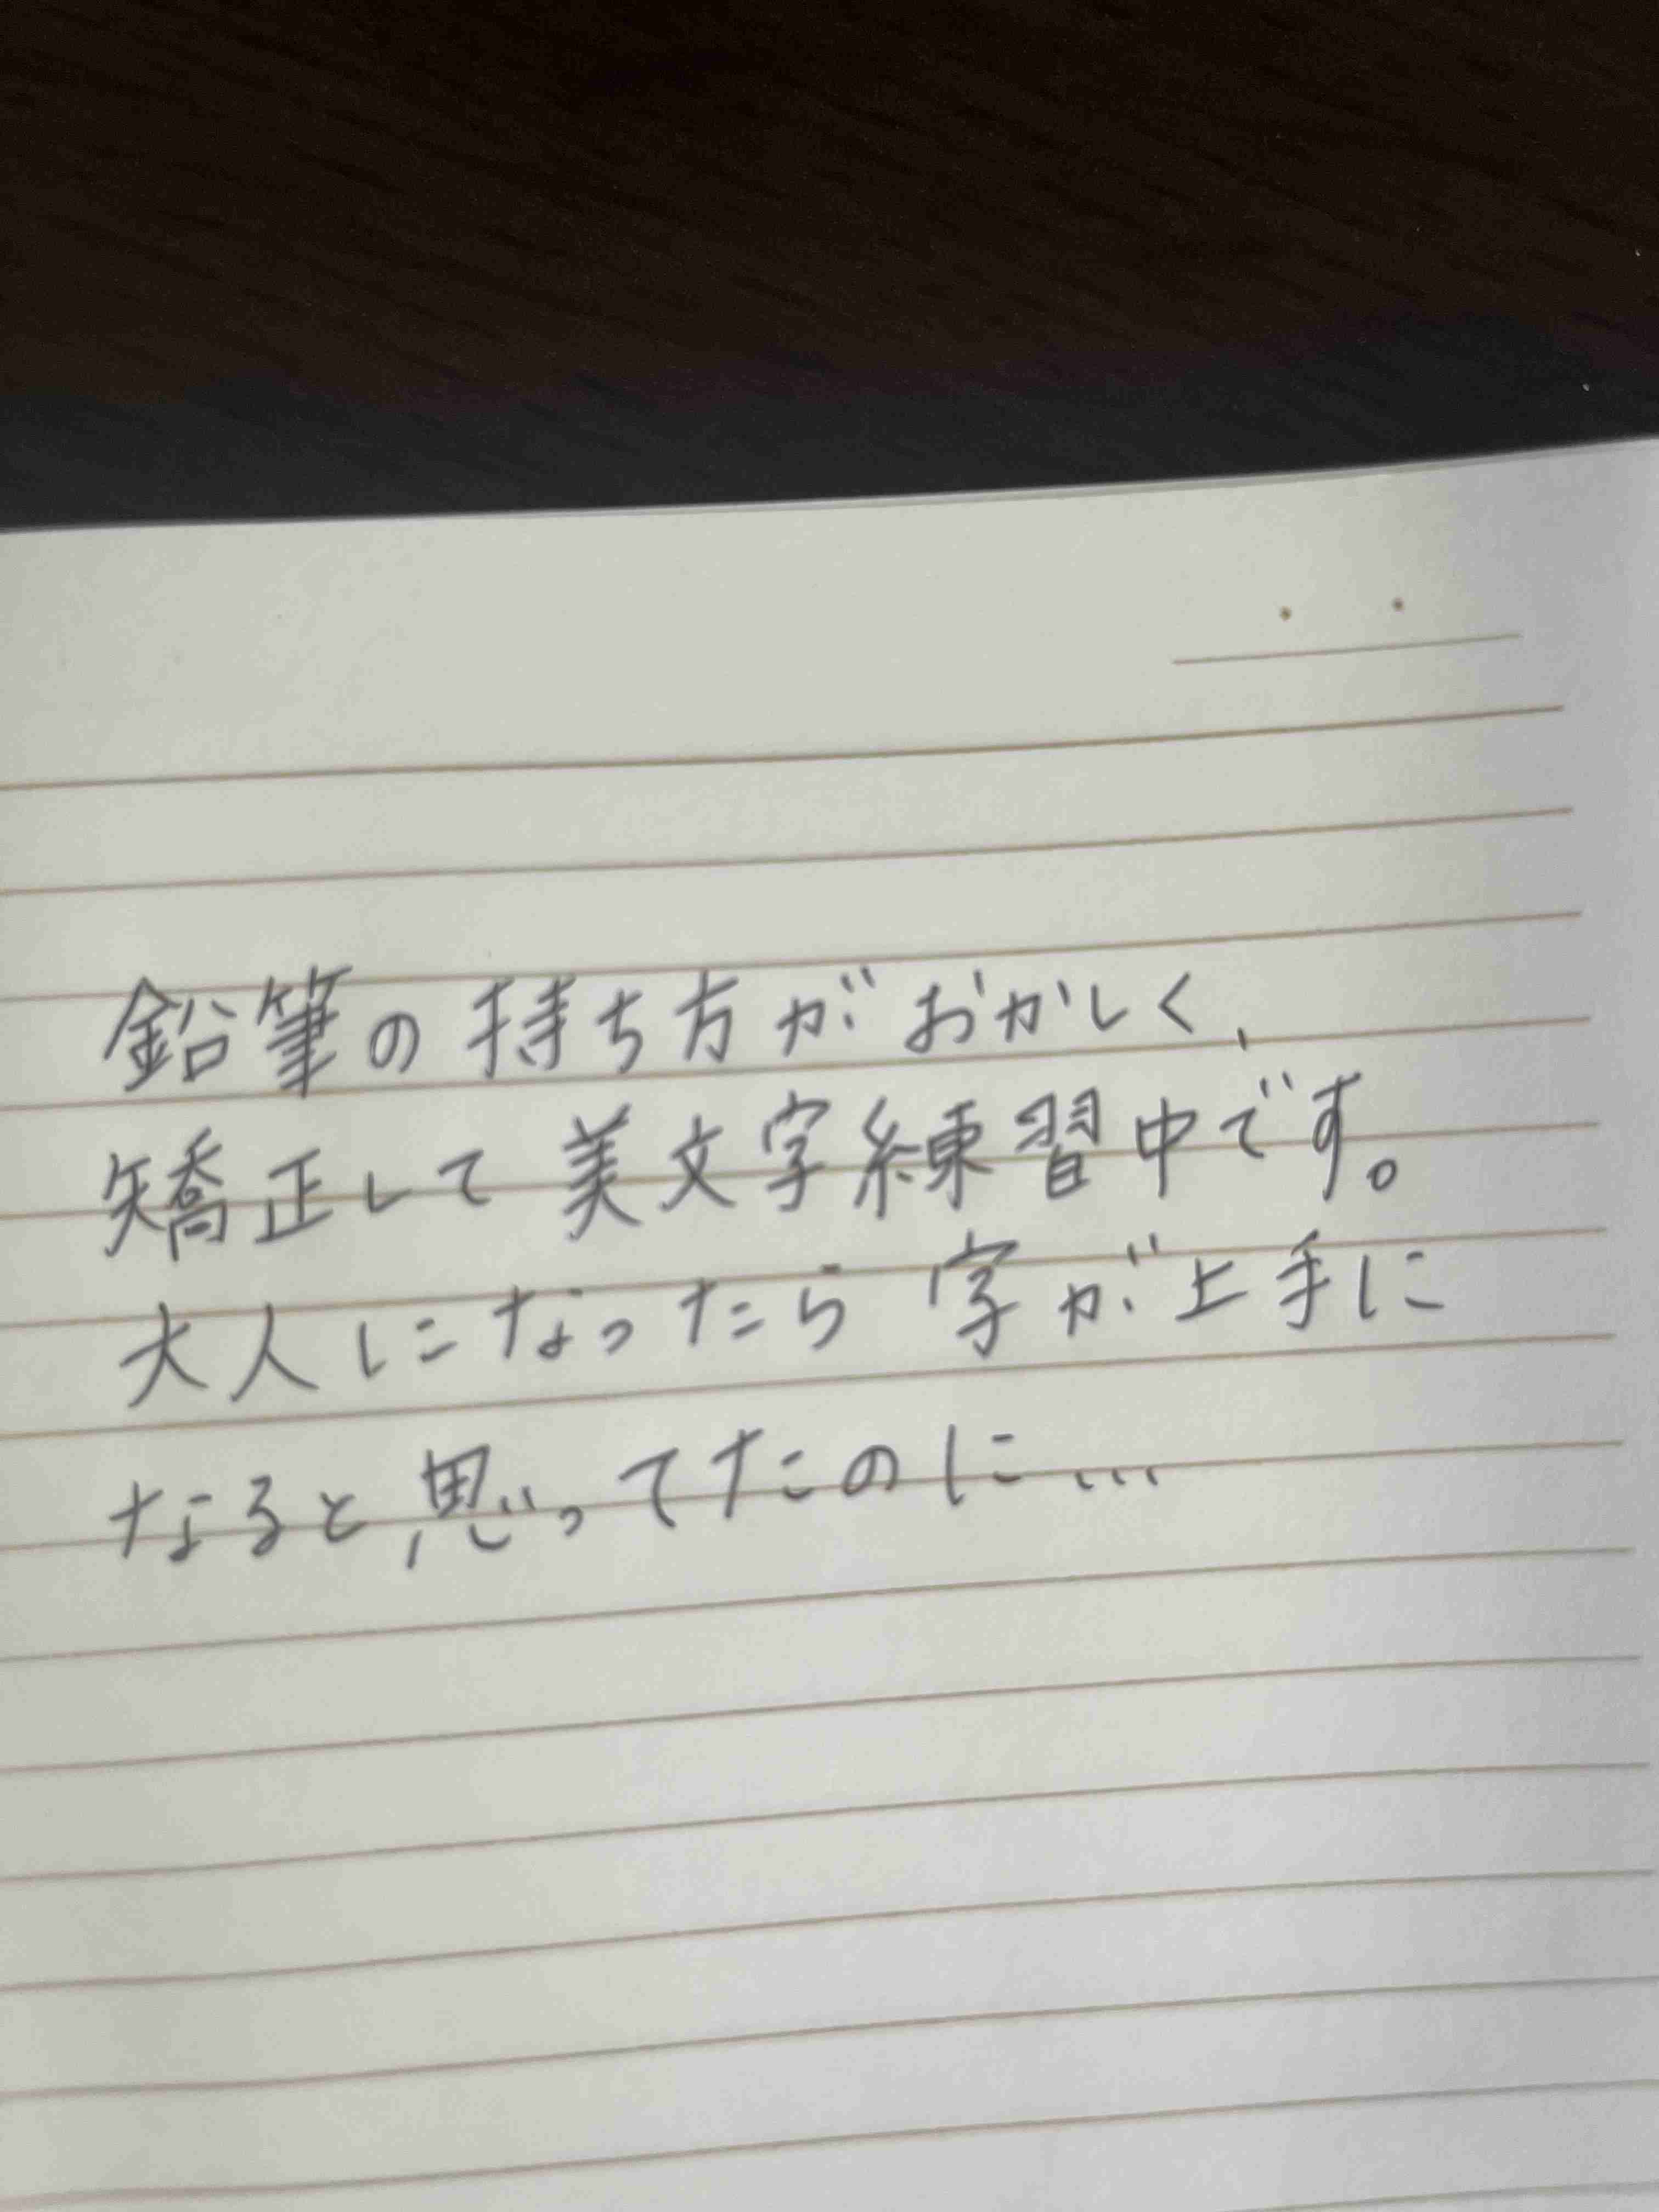 鉛筆の持ち方がおかしく、
矯正して美文字練習中です。
大人になったら字が上手に
なると思ってたのに…